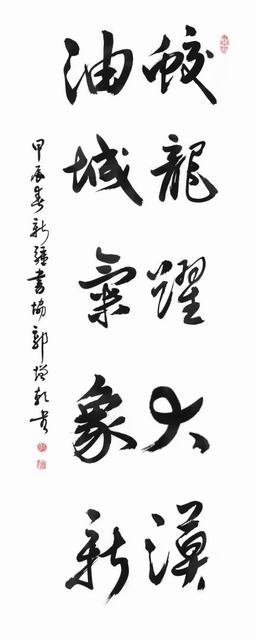 蛟龍躍大漠
油城氣象新
甲辰春新疆書協郭增乾書